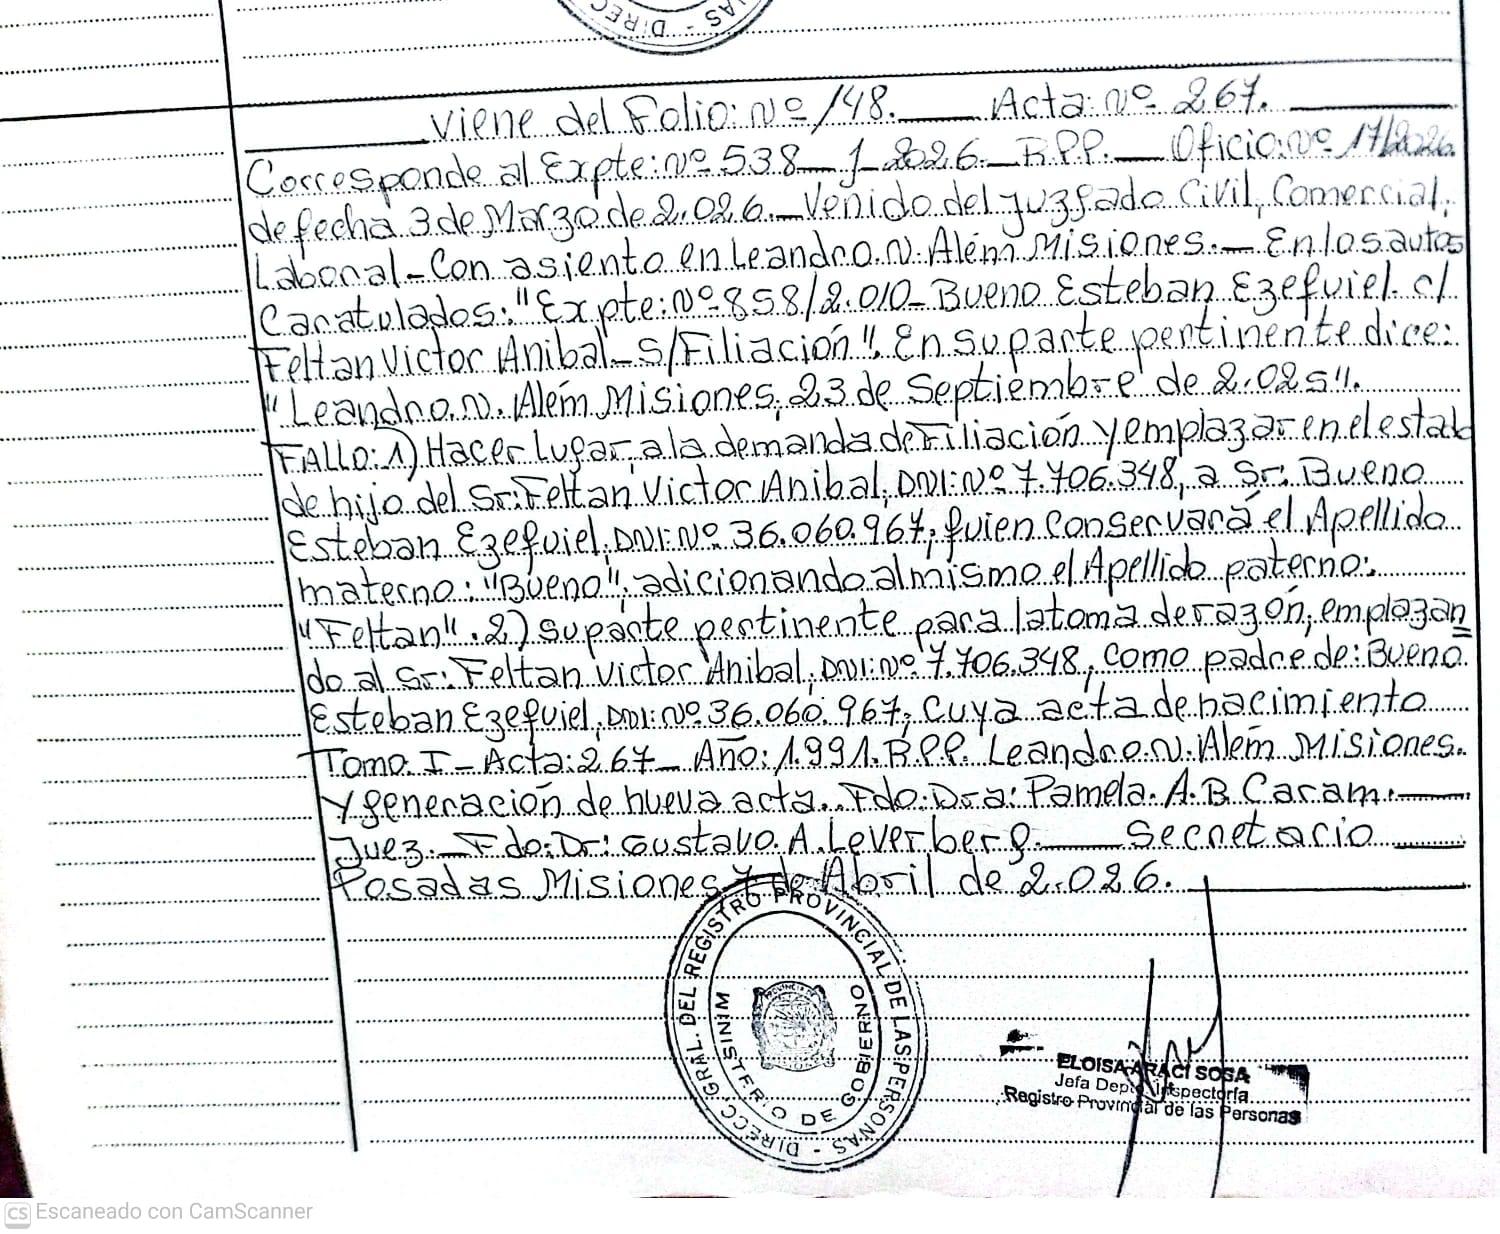 viene del Folio: Nº 148. Acta: Nº 267.
Corresponde al Expte: Nº 538 - J - 2026. - R.P.P. - Oficio: Nº 17/2026
de fecha 3 de Marzo de 2.026. - Venido del Juzgado Civil, Comercial,
Laboral - Con asiento en Leandro. N. Além Misiones. - En los autos
Caratulados: "Expte: Nº 858/2.010 - Bueno Esteban Ezequiel. c/
Feltan Victor Anibal - S/Filiación". En su parte pertinente dice:
"Leandro. N. Além Misiones, 23 de Septiembre de 2.025".
FALLO: 1) Hacer lugar, a la demanda de Filiación y emplazar en el estado
de hijo del Sr: Feltan Victor Anibal, DNI: Nº 7.706.348, a Sr: Bueno
Esteban Ezequiel, DNI: Nº 36.060.967, quien conservará el Apellido
materno: "Bueno", adicionando al mismo el Apellido paterno:
"Feltan". 2) su parte pertinente para la toma de razón, emplazan
do al Sr: Feltan Victor Anibal, DNI: Nº 7.706.348, como padre de: Bueno
Esteban Ezequiel, DNI: Nº 36.060.967, cuya acta de nacimiento
Tomo. I - Acta: 267 - Año: 1.991. R.P.P. Leandro. N. Além Misiones.
Y generación de nueva acta. Fdo: Dra: Pamela. A. B. Caram.
Juez. - Fdo: Dr: Gustavo. A. Leverberg. Secretario
Posadas Misiones 7 de Abril de 2.026.
DIRECC. GRAL. DEL REGISTRO PROVINCIAL DE LAS PERSONAS -
MINISTERIO DE GOBIERNO
ELOISA ARACI SOSA
Jefa Depto Inspectoría
Registro Provincial de las Personas
CS Escaneado con CamScanner